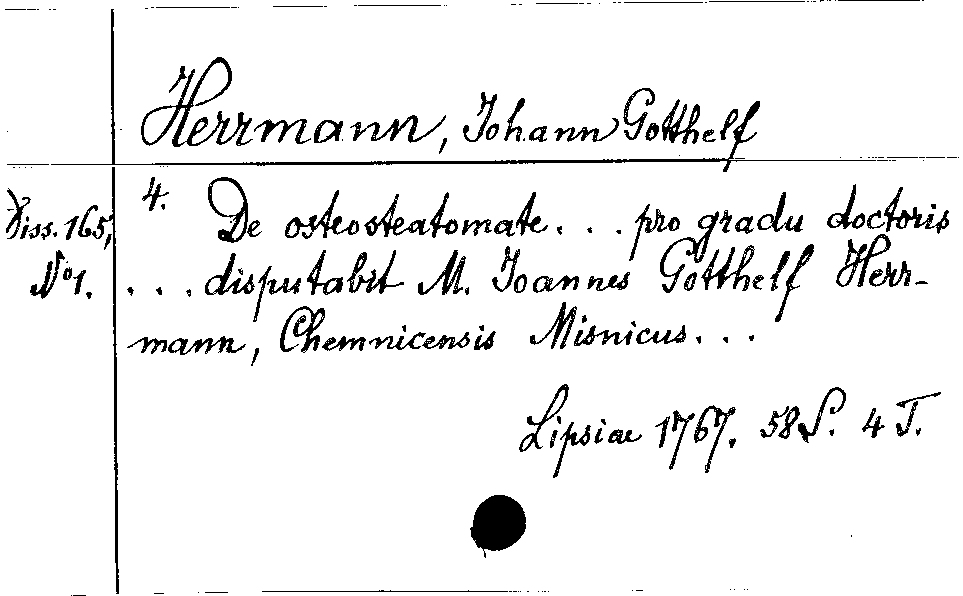 Herrmann, Johann Gotthelf
Diss. 165, 4. De osteosteatomate. . . pro gradu doctoris
No 1. . . . disputabit M. Joannes Gotthelf Herr-
mann, Chemnicensis Misnicus. . .
Lipsiae 1767. 58 S. 4 T.